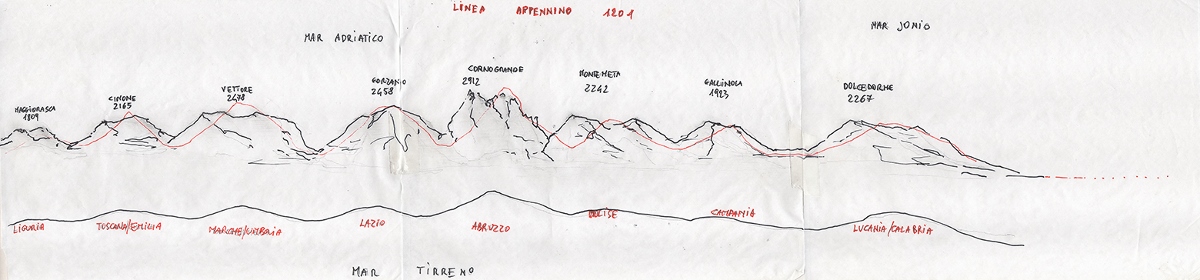 LINEA APPENNINO 1201
MAR ADRIATICO
MAR JONIO
MAGGIORASCA
1809
CIMONE
2165
VETTORE
2478
GORZANO
2458
CORNOGRANDE
2912
MONTE META
2242
GALLINOLA
1923
DOLCEDORME
2267
LIGURIA
TOSCANA/EMILIA
MARCHE/UMBRIA
LAZIO
ABRUZZO
MOLISE
CAMPANIA
LUCANIA/CALABRIA
MAR TIRRENO